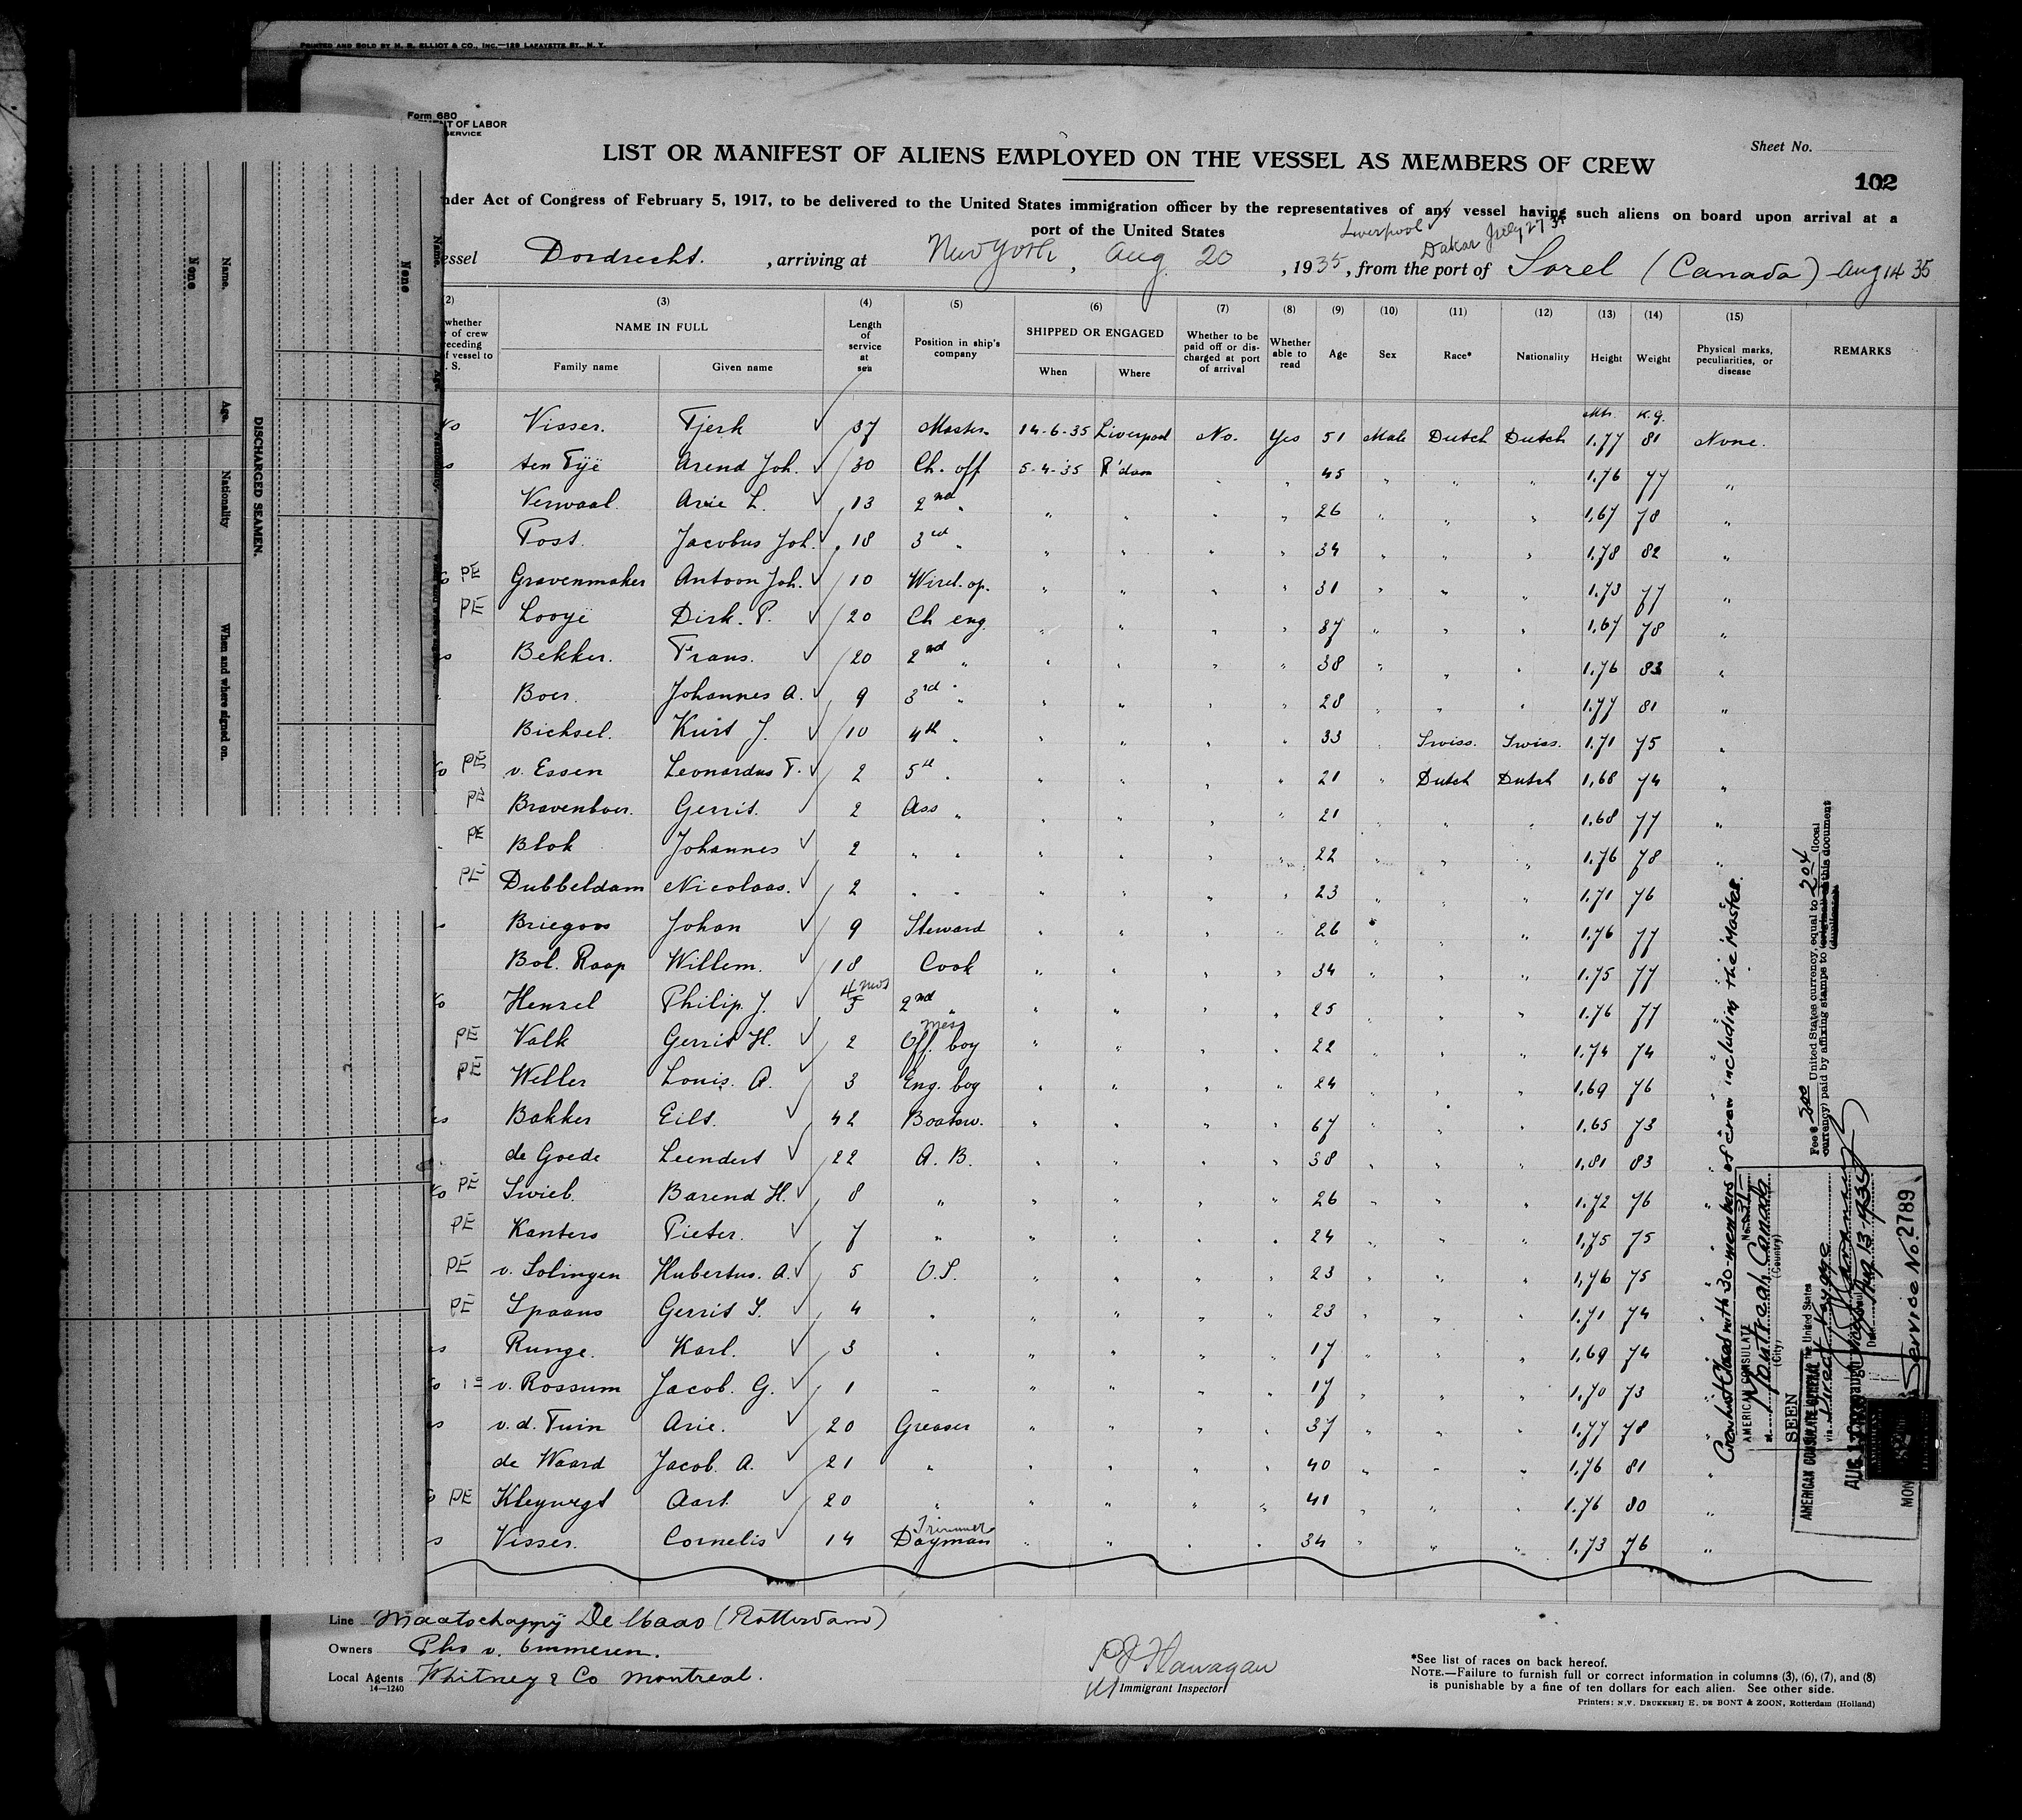 PRINTED AND SOLD BY M. B. ELLIOT & CO., INC.—129 LAFAYETTE ST., N. Y.
Form 680
OF LABOR
SERVICE
Sheet No.
LIST OR MANIFEST OF ALIENS EMPLOYED ON THE VESSEL AS MEMBERS OF CREW
102
nder Act of Congress of February 5, 1917, to be delivered to the United States immigration officer by the representatives of any vessel having such aliens on board upon arrival at a
port of the United States
Liverpool
Dakar July 27 35
essel Dordrecht. , arriving at New York , Aug 20 , 1935 , from the port of Sorel (Canada) Aug 14 35
(2) (3) (4) (5) (6) (7) (8) (9) (10) (11) (12) (13) (14) (15)
whether of crew preceding of vessel to S. NAME IN FULL Length of service at sea Position in ship's company SHIPPED OR ENGAGED Whether to be paid off or discharged at port of arrival Whether able to read Age Sex Race* Nationality Height Weight Physical marks, peculiarities, or disease REMARKS
Family name Given name When Where
Mtr. K.g.
No Visser. Tjerk 37 Master 14-6-35 Liverpool No. Yes 51 Male Dutch Dutch 1.77 81 None.
s ten Tÿe Arend Joh. 30 Ch. off 5-4-35 R'dam " " 45 " " " 1.76 77 "
Verwaal. Arie L. 13 2nd " " " " " 26 " " " 1.67 78 "
Post. Jacobus Joh. 18 3rd " " " " " 34 " " " 1.78 82 "
o PE Gravenmaker Antoon Joh. 10 Wirel. op. " " " " 31 " " " 1.73 77 "
PE Looÿe Dirk. P. 20 Ch eng. " " " " 37 " " " 1.67 78 "
s Bekker. Frans. 20 2nd " " " " " 38 " " " 1.76 83 "
Boer. Johannes A. 9 3rd " " " " " 28 " " " 1.77 81 "
Bichsel. Kurt J. 10 4th " " " " " 33 " Swiss. Swiss. 1.71 75 "
o PE v. Essen Leonardus T. 2 5th " " " " " 21 " Dutch Dutch 1.68 74 "
PE Bravenboer. Gerrit. 2 Ass " " " " " 21 " " " 1.68 77 "
PE Blok Johannes 2 " " " " " " 22 " " " 1.76 78 "
PE Dubbeldam Nicolaas. 2 " " " " " " 23 " " " 1.71 76 "
s Briegoos Johan 9 Steward " " " " 26 " " " 1.76 77 "
Bol. Raap Willem. 18 Cook " " " " 34 " " " 1.75 77 "
o Hensel Philip J. 5 4 mos 2nd " " " " " 25 " " " 1.76 77 "
PE Valk Gerrit H. 2 Off. mess boy " " " " 22 " " " 1.74 74 "
PE Weller Louis. A. 3 Eng. boy " " " " 24 " " " 1.69 76 "
es Bakker Eilt. 42 Boatsw. " " " " 67 " " " 1.65 73 "
de Goede Leendert 22 A. B. " " " " 38 " " " 1.81 83 "
o PE Swieb. Barend H. 8 " " " " " 26 " " " 1.72 76 "
PE Kanters Pieter. 7 " " " " " 24 " " " 1.75 75 "
PE v. Solingen Hubertus. A. 5 O.S. " " " " 23 " " " 1.76 75 "
PE Spaans Gerrit S. 4 " " " " " 23 " " " 1.71 74 "
s Runge. Karl. 3 " " " " " 17 " " " 1.69 74 "
o v. Rossum Jacob. G. 1 " " " " " 17 " " " 1.70 73 "
s v.d. Tuin Arie. 20 Greaser " " " " 37 " " " 1.77 78 "
de Waard Jacob. A. 21 " " " " " 40 " " " 1.76 81 "
o PE Kleywegt Aart 20 " " " " " 41 " " " 1.76 80 "
s Visser. Cornelis 14 Trimmer Dayman " " " " 34 " " " 1.73 76 "
Line Maatschappij De Maas (Rotterdam)
Owners Phs v. Ommeren.
Local Agents Whitney & Co Montreal.
14—1240
P J Flanagan
Immigrant Inspector
*See list of races on back hereof.
NOTE.—Failure to furnish full or correct information in columns (3), (6), (7), and (8)
is punishable by a fine of ten dollars for each alien. See other side.
Printers: N.V. DRUKKERIJ E. DE BONT & ZOON, Rotterdam (Holland)
Crew list closed with 30 members of crew including the Master.
AMERICAN CONSULATE
at Montreal Canada
(City) (Country)
SEEN
via direct voyage
Date Aug 13 1935
Service No. 2789
Fee $ 2.00 United States currency, equal to 204 (local
currency) paid by affixing stamps to this document
DISCHARGED SEAMEN.
Name. Age. Nationality When and where signed on.
None
None